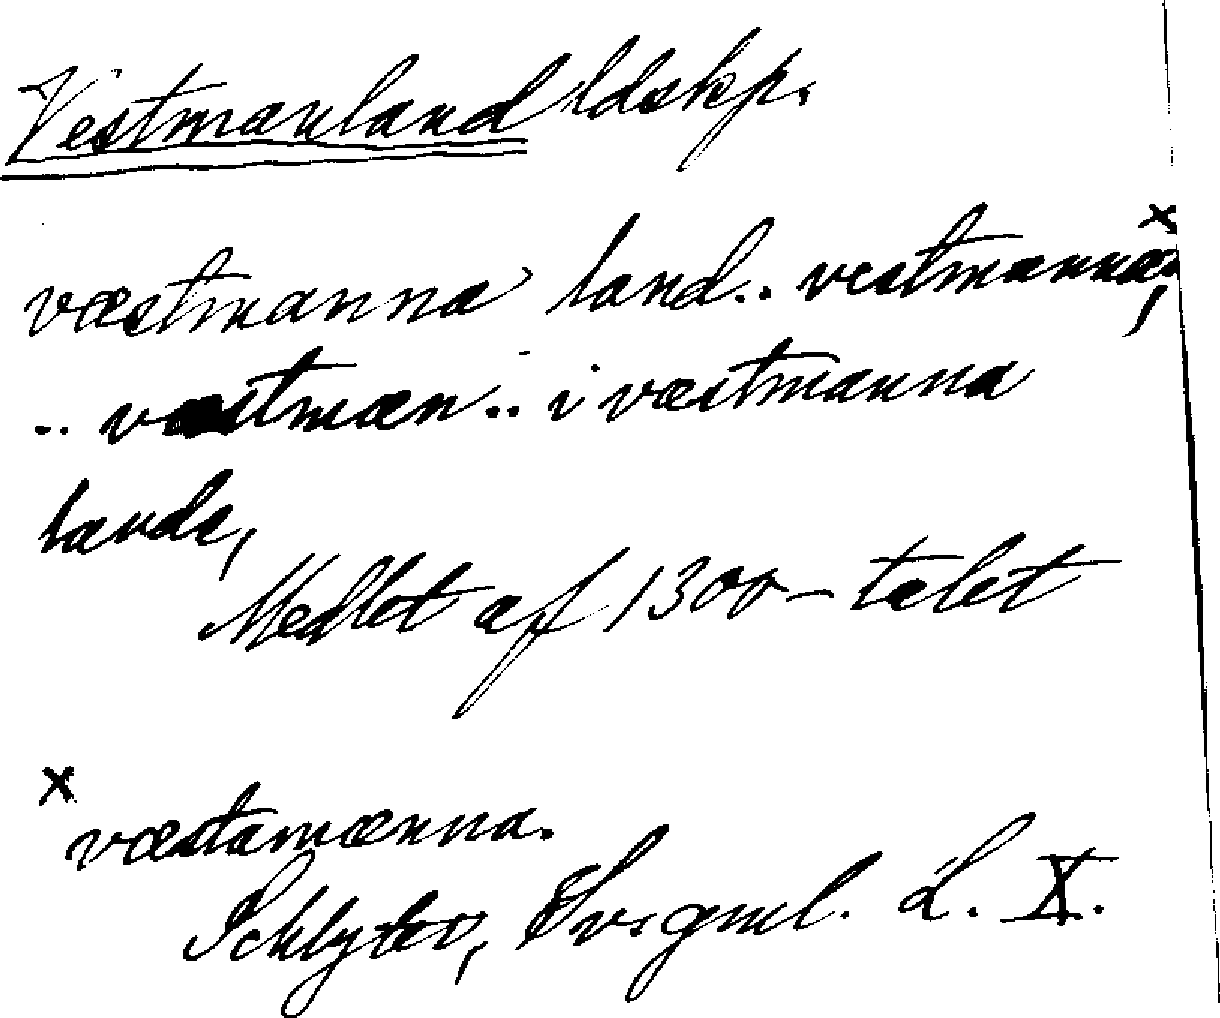 Vestmanland ldskp.
væstmanna land.. vestmannæ, x
.. væstmæn.. i væstmanna
lande,
Medlet af 1300-talet
x
væstamænna.
Schlyter, Sv. gml. L. X.